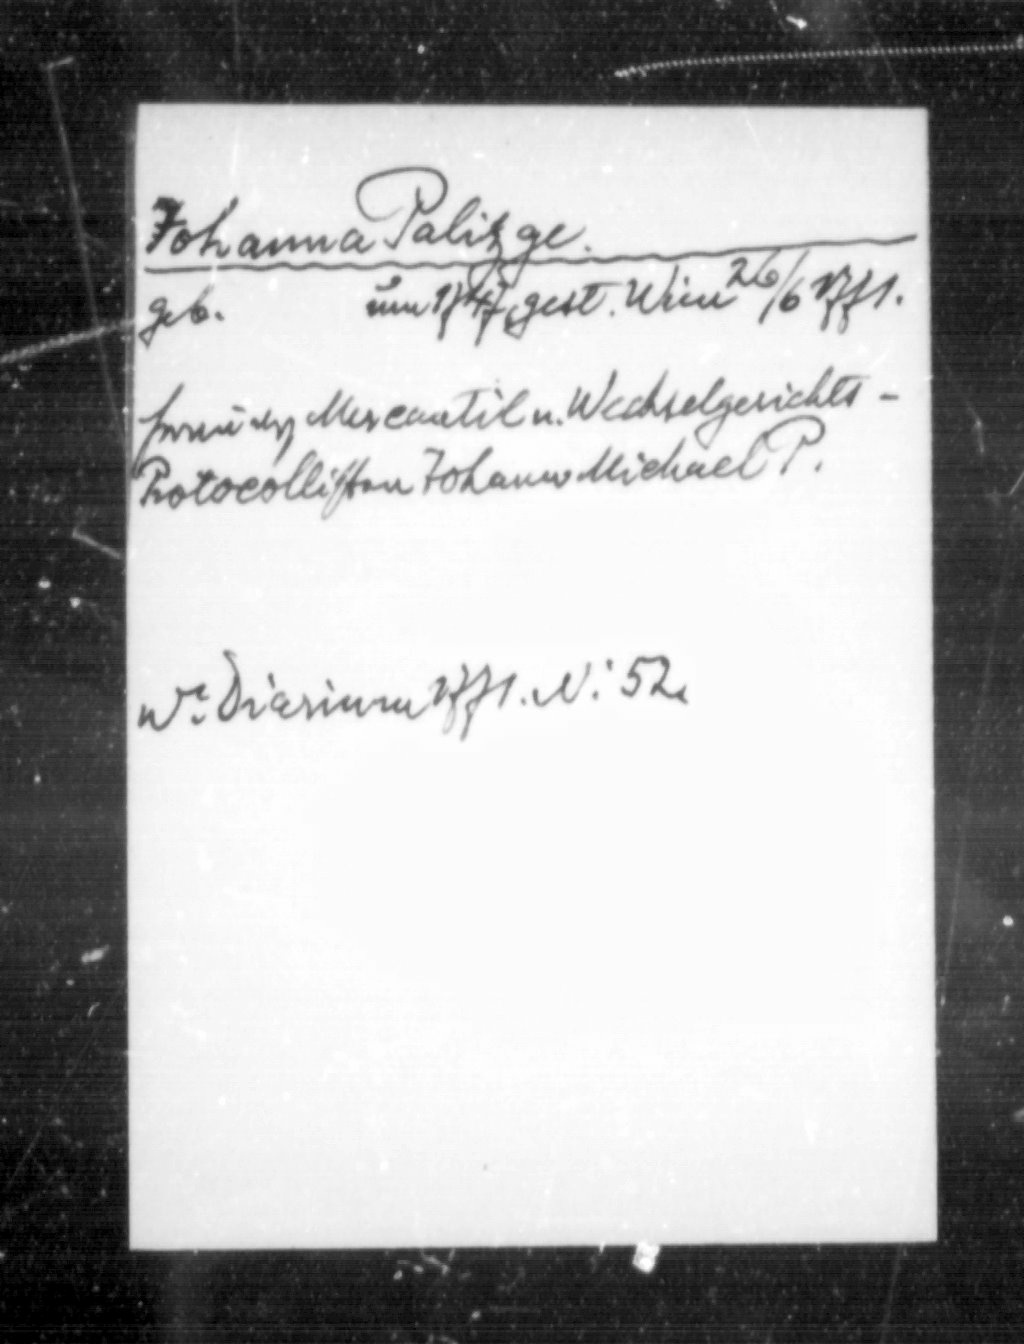 Johanna Palizge.
geb. um 1747, gest. Wien 26/6 1771.
Mercantil u. Wechselgerichts-
Protocollisten Johann Michael P.
Wr. Diarium 1771. N: 52.